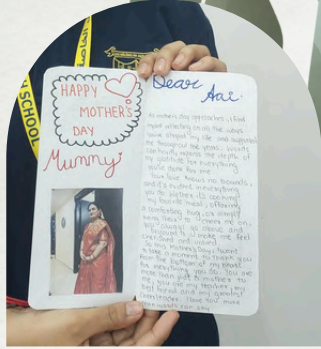 HAPPY
MOTHER'S
DAY
Mummy
Dear
Aai.
As mothers day approaches, I find
myself reflecting on all the ways
you've shaped my life and supported
me throughout the years. Words
can hardly express the depth of
my gratitude for everything
you've done for me.
Your love knows no bounds,
and it's evident in everything
you do. Whether it's cooking
my favorite meals, offering
a comforting hug, or simply
being there to cheer me on,
you always go above and
beyond to make me feel
cherished and loved.
So this Mother's Day, I want
to take a moment to thank you
from the bottom of my heart
for everything you do. You are
more than just a mother to
me, you are my teacher, my
best friend and my greatest
cheerleader. I love you more
than words can say
SCHOOL